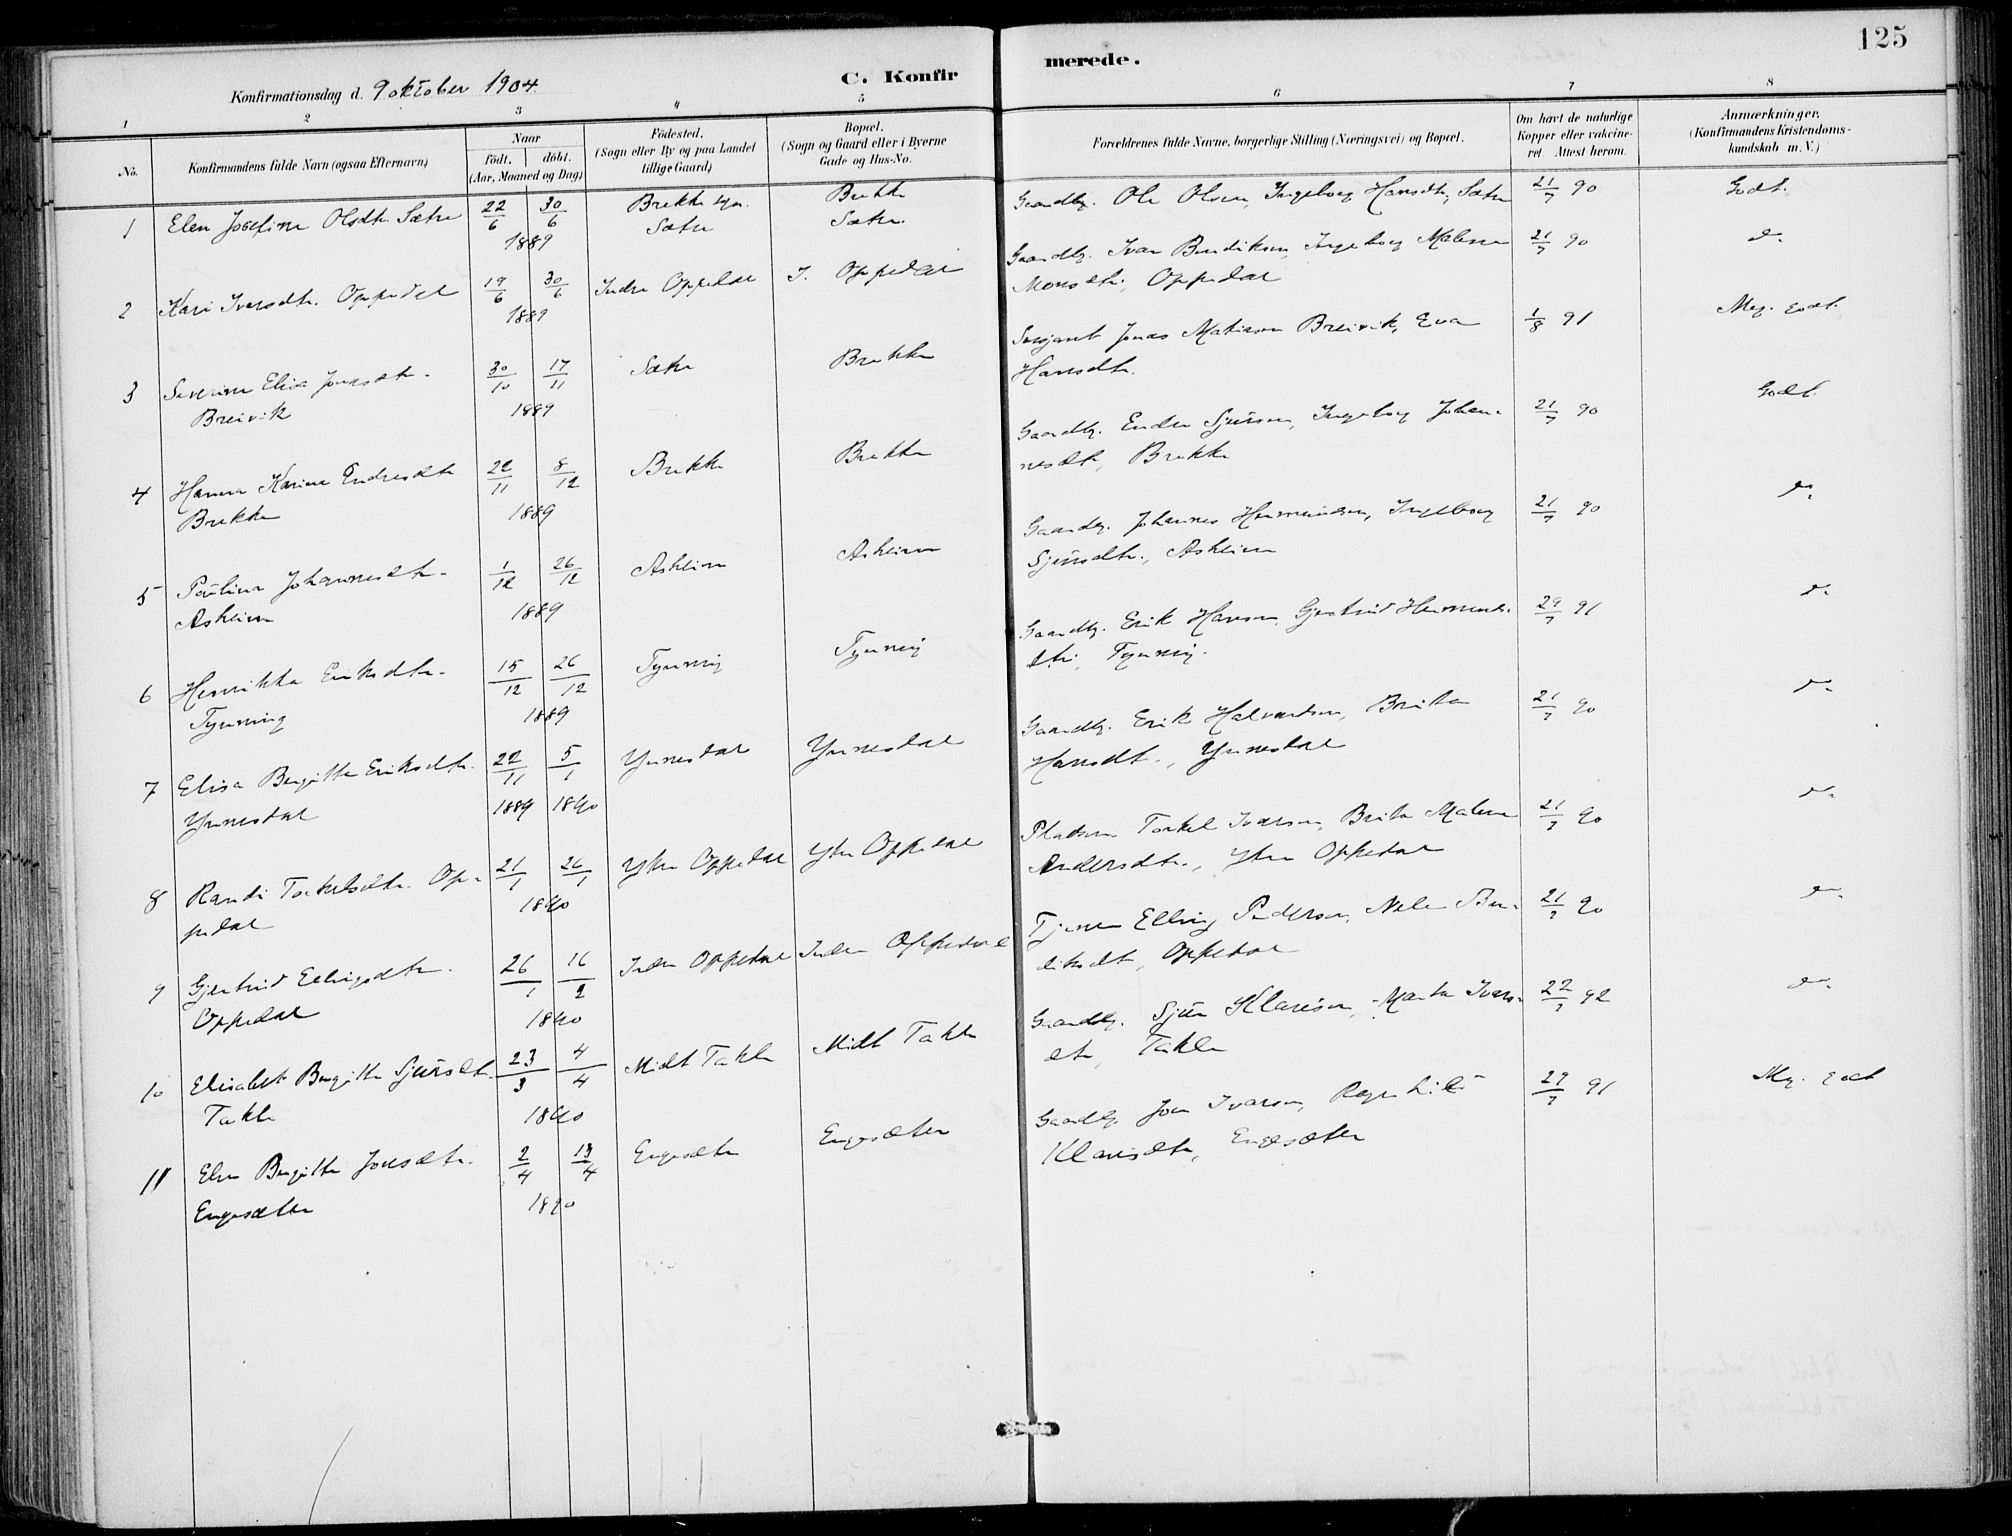 125
Konfirmationsdag d. 9 oktober 1904.
C. Konfirmerede.
1 2 3 4 5 6 7 8
No.
Konfirmandens fulde Navn (ogsaa Efternavn)
Naar
født. døbt.
(Aar, Maaned og Dag)
Fødested.
(Sogn eller By og paa Landet
tillige Gaard)
Bopæl.
(Sogn og Gaard eller i Byerne
Gade og Hus-No.
Forældrenes fulde Navne, borgerlige Stilling (Næringsvei) og Bopæl.
Om havt de naturlige
Kopper eller vakcine-
ret Attest herom.
Anmærkninger.
(Konfirmandens Kristendoms-
kundskab m. V.)
1 Elen Josefine Olsdtr. Sætre 22/6 30/6 Brekke sgn. Brekke Gaardbr. Ole Olsen, Ingeborg Hansdtr., Sætre 21/7 90 Godt.
1889 Sætre Sætre.
2 Kari Iversdtr. Oppedal 19/6 30/6 Indre Oppedal I. Oppedal Gaardbr. Ivar Bendiksen, Ingeborg Malene 21/7 90 do
1889 Monsdtr., Oppedal
3 Severine Elisa Jonasdtr. 30/10 17/11 Sætre Brekke Sersjant Jonas Matiasen Breivik, Eva 1/8 91 Meg. godt.
Breivik 1889 Hansdtr.
4 Hanna Karine Endresdtr 22/11 8/12 Brekke Brekke Gaardbr. Endre Sjursen, Ingeborg Johan- 21/7 90 Godt.
Brekke 1889 nesdtr, Brekke
5 Paulina Johannesdtr. 1/12 26/12 Asheim Asheim Gaardbr. Johannes Hermundsen, Ingeborg 21/7 90 do
Asheim 1889 Sjursdtr., Asheim
6 Henrikka Eriksdtr. 15/12 26/12 Tynning Tynning Gaardbr. Erik Hansen, Gjertrud Hermunds- 29/7 91 do
Tynning 1889 dtr, Tynning.
7 Elisa Bergitte Eriksdtr. 22/11 5/1 Ynnesdal Ynnesdal Gaardbr. Erik Halvardsen, Brita 21/7 90 do
Ynnesdal 1889 1890 Hansdtr., Ynnesdal
8 Randi Torkelsdtr. Op- 21/1 26/1 Ytre Oppedal Ytre Oppedal Pladsm Torkel Ivarsen, Brita Malene 21/7 90 do
pedal 1890 Andersdtr., Ytre Oppedal
9 Gjertrud Ellingsdtr. 26/1 16/2 Indre Oppedal Indre Oppedal Tjener Elling Pedersen, Ben- 21/7 90 do
Oppedal 1890 diksdtr, Oppedal
10 Elisabet Bergitte Sjursdtr. 23/3 4/4 Midt Takle Midt Takle Gaardbr. Sjur Klausen, Marta Ivars- 22/7 92 do
Takle 1890 dtr, Takle
11 Elen Bergitte Jonsdtr. 2/4 13/4 Engesæter Engesæter Gaardbr. Jon Ivarsen, Ragnhild 29/7 91 Mg. godt
Engesæter 1890 Klausdtr, Engesæter